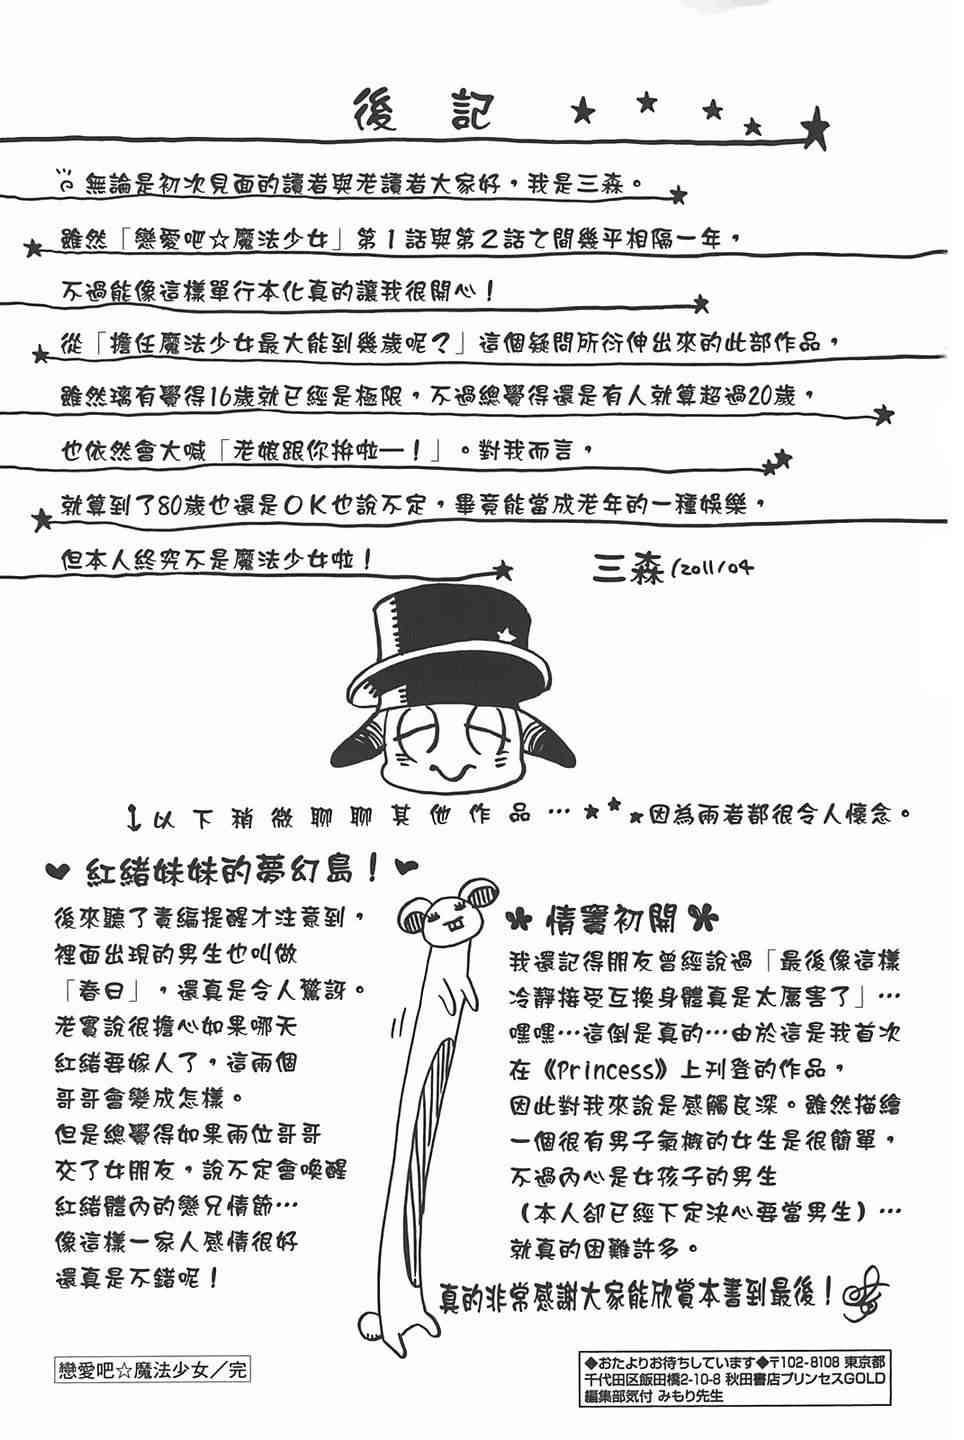 後記
無論是初次見面的讀者與老讀者大家好，我是三森。
雖然「戀愛吧☆魔法少女」第1話與第2話之間幾乎相隔一年，
不過能像這樣單行本化真的讓我很開心！
從「擔任魔法少女最大能到幾歲呢？」這個疑問所衍伸出來的此部作品，
雖然璃有覺得16歲就已經是極限，不過總覺得還是有人就算超過20歲，
也依然會大喊「老娘跟你拚啦—！」。對我而言，
就算到了80歲也還是OK也說不定，畢竟能當成老年的一種娛樂，
但本人終究不是魔法少女啦！
三森 /2011/04
↓以下稍微聊聊其他作品…★★★因為兩者都很令人懷念。
♥紅緒妹妹的夢幻島！♥
後來聽了責編提醒才注意到，
裡面出現的男生也叫做
「春日」，還真是令人驚訝。
老實說很擔心如果哪天
紅緒要嫁人了，這兩個
哥哥會變成怎樣。
但是總覺得如果兩位哥哥
交了女朋友，說不定會喚醒
紅緒體內的戀兄情節…
像這樣一家人感情很好
還真是不錯呢！
情竇初開
我還記得朋友曾經說過「最後像這樣
冷靜接受互換身體真是太厲害了」…
嘿嘿…這倒是真的…由於這是我首次
在《Princess》上刊登的作品，
因此對我來說是感觸良深。雖然描繪
一個很有男子氣概的女生是很簡單，
不過內心是女孩子的男生
（本人卻已經下定決心要當男生）…
就真的困難許多。
真的非常感謝大家能欣賞本書到最後！
戀愛吧☆魔法少女／完
◆おたよりお待ちしています◆〒102-8108 東京都
千代田区飯田橋2-10-8 秋田書店プリンセスGOLD
編集部気付 みもり先生